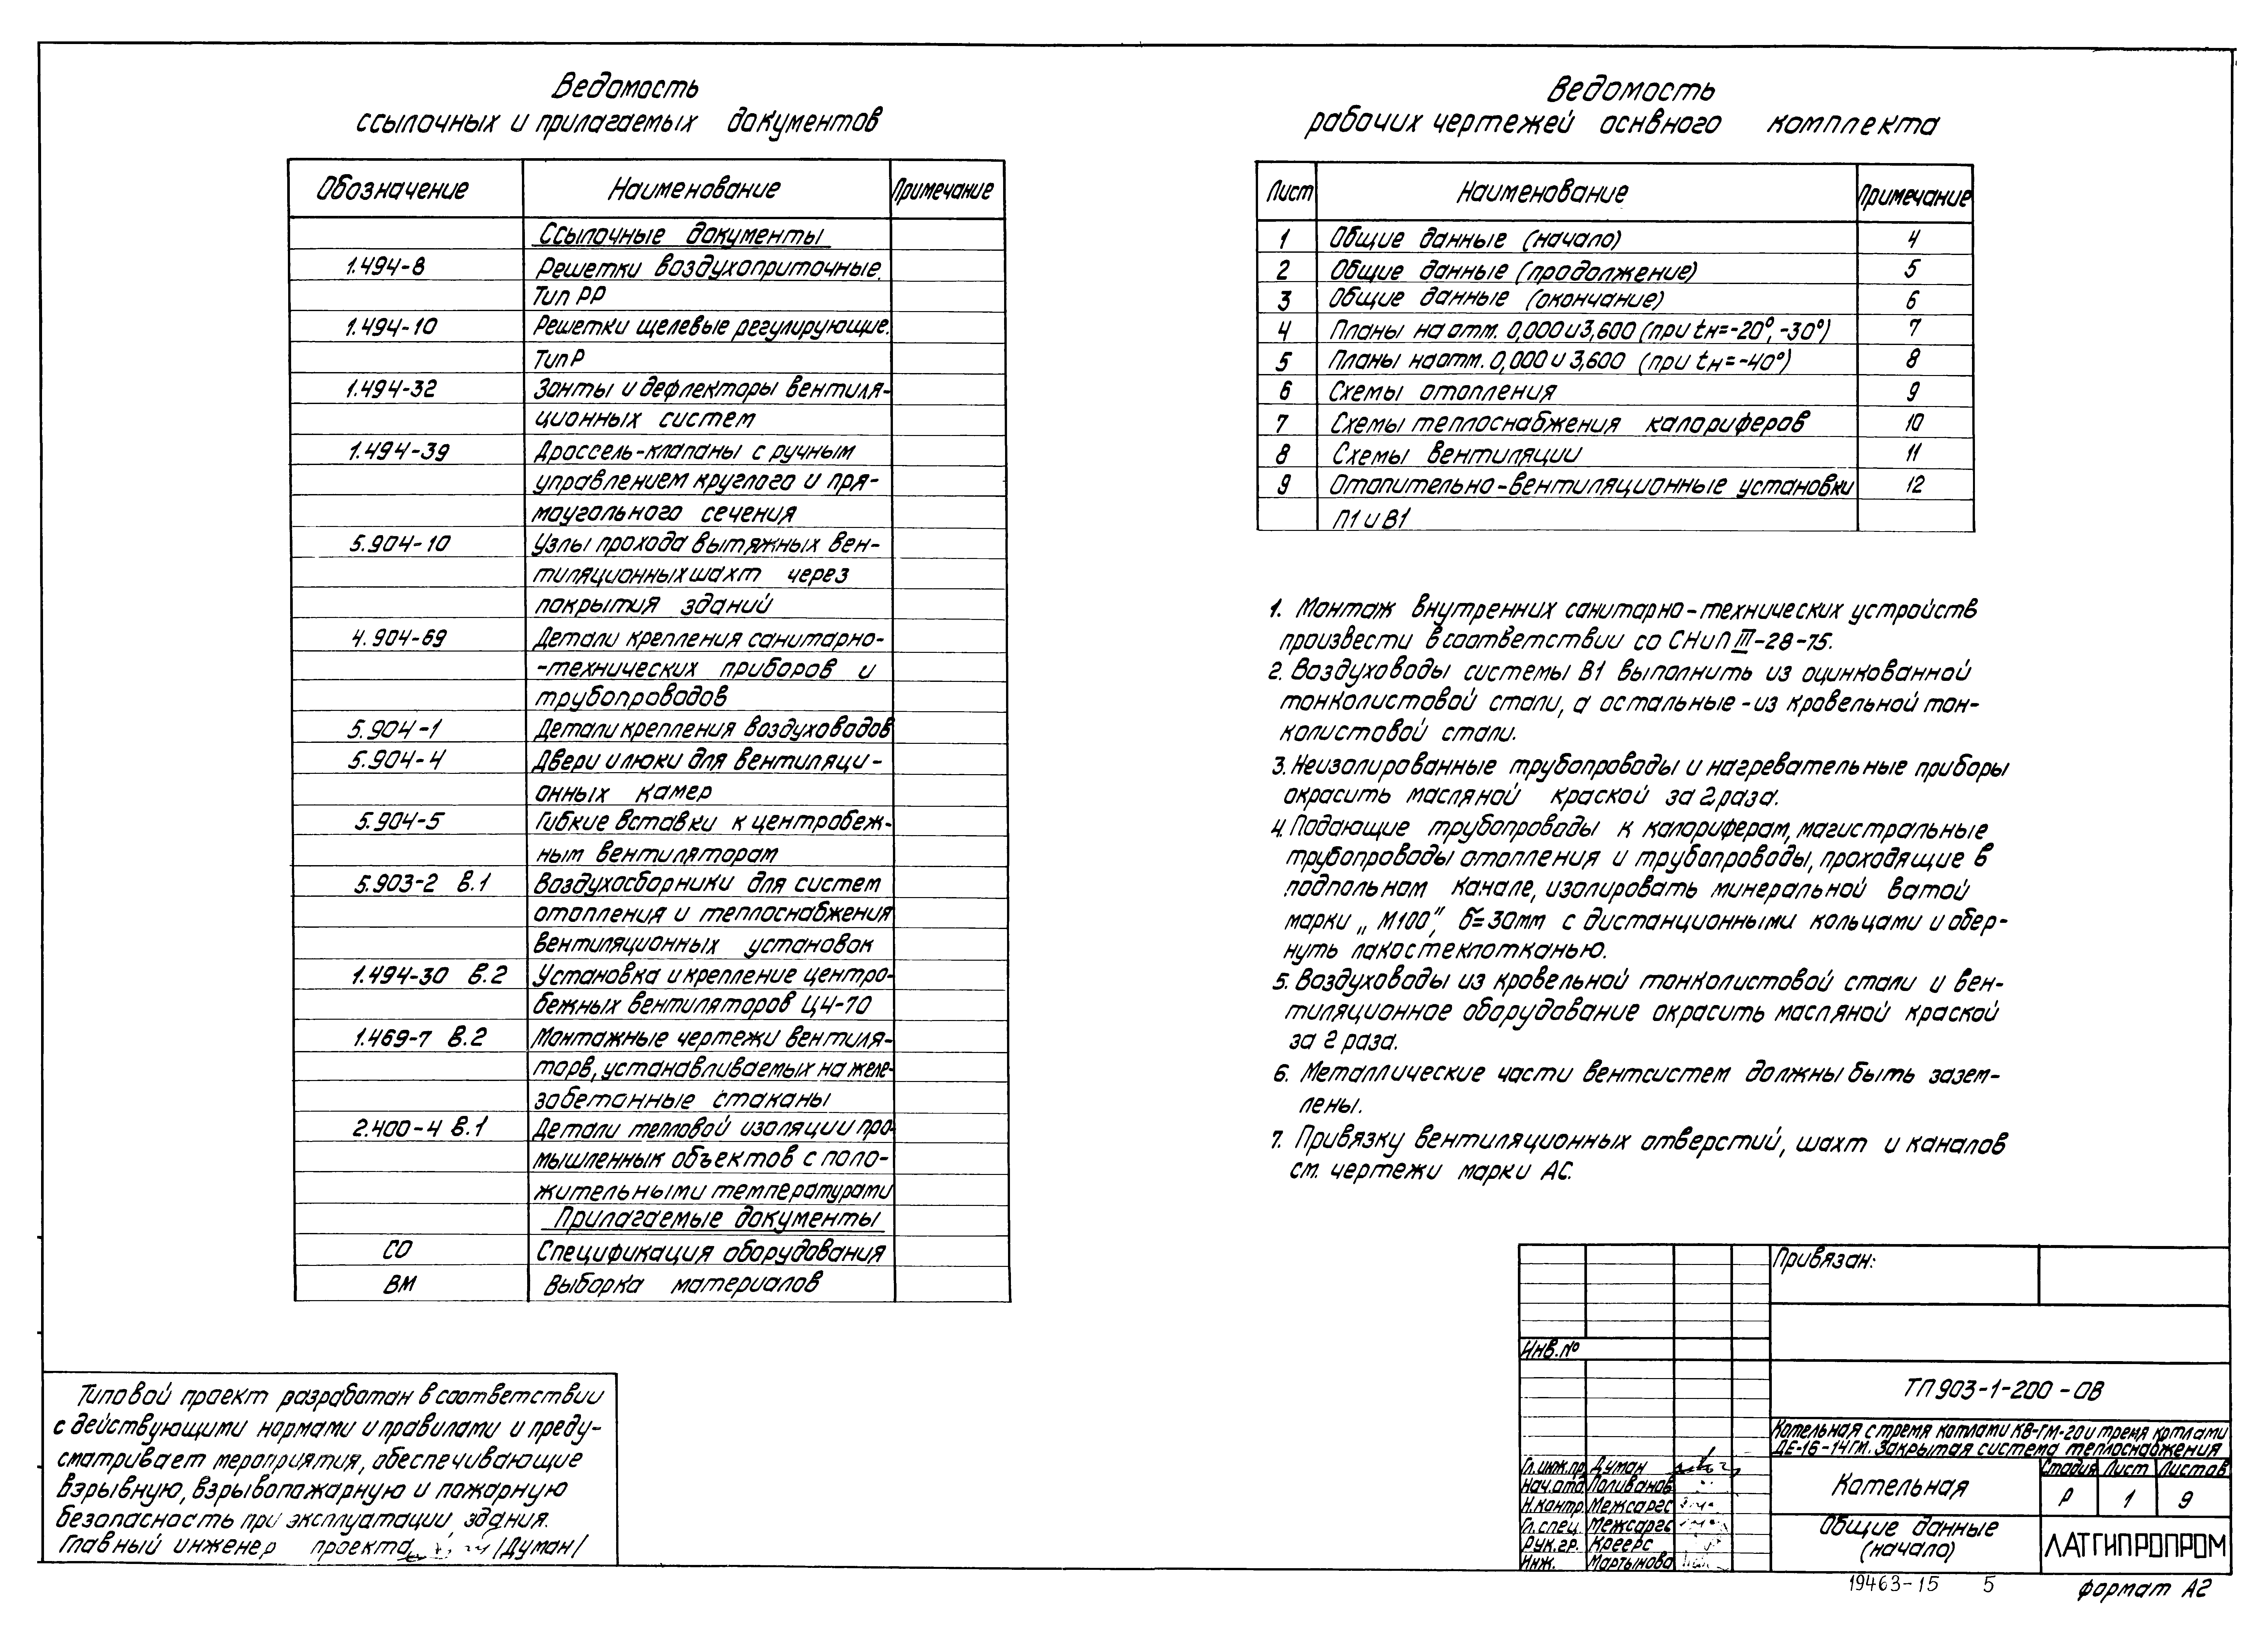 Ведомость
ссылочных и прилагаемых документов
Обозначение Наименование Примечание
Ссылочные документы
1.494-8 Решетки воздухоприточные.
Тип РР
1.494-10 Решетки щелевые регулирующие.
Тип Р
1.494-32 Зонты и дефлекторы вентиля-
ционных систем
1.494-39 Дроссель-клапаны с ручным
управлением круглого и пря-
моугольного сечения
5.904-10 Узлы прохода вытяжных вен-
тиляционных шахт через
покрытия зданий
4.904-69 Детали крепления санитарно-
-технических приборов и
трубопроводов
5.904-1 Детали крепления воздуховодов
5.904-4 Двери и люки для вентиляци-
онных камер
5.904-5 Гибкие вставки к центробеж-
ным вентиляторам
5.903-2 в.1 Воздухосборники для систем
отопления и теплоснабжения
вентиляционных установок
1.494-30 в.2 Установка и крепление центро-
бежных вентиляторов Ц4-70
1.469-7 в.2 Монтажные чертежи вентиля-
торв, устанавливаемых на желе-
забетонные стаканы
2.400-4 в.1 Детали тепловой изоляции про-
мышленнык объектов с поло-
жительными температурами
Прилагаемые документы
СО Спецификация оборудования
ВМ Выборка материалов
Ведомость
рабочих чертежей оснвного комплекта
Лист Наименование Примечание
1 Общие данные (начало) 4
2 Общие данные (продолжение) 5
3 Общие данные (окончание) 6
4 Планы на отм. 0,000 и 3,600 (при tн=-20°,-30°) 7
5 Планы на отм. 0,000 и 3,600 (при tн=-40°) 8
6 Схемы отопления 9
7 Схемы теплоснабжения калориферов 10
8 Схемы вентиляции 11
9 Отопительно-вентиляционные установки 12
П1 и В1
1. Монтаж внутренних санитарно-технических устройств
произвести в соответствии со СНиП III-28-75.
2. Воздуховоды системы В1 выполнить из оцинкованной
тонколистовой стали, а остальные - из кровельной тон-
колистовой стали.
3. Неизолированные трубопроводы и нагревательные приборы
окрасить масляной краской за 2 раза.
4. Подающие трубопроводы к калориферам, магистральные
трубопроводы отопления и трубопроводы, проходящие в
подпольном канале, изолировать минеральной ватой
марки „М100”, б=30мм с дистанционными кольцами и обер-
нуть лакостеклотканью.
5. Воздуховоды из кровельной тонколистовой стали и вен-
тиляционное оборудование окрасить масляной краской
за 2 раза.
6. Металлические части вентсистем должны быть зазем-
лены.
7. Привязку вентиляционных отверстий, шахт и каналов
см. чертежи марки АС.
Типовой проект разработан в соответствии
с действующими нормами и правилами и преду-
сматривает мероприятия, обеспечивающие
взрывную, взрывопожарную и пожарную
безопасность при эксплуатации здания.
Главный инженер проекта /Думан/
Привязан:
Инв. №
ТП 903-1-200-ОВ
Котельная с тремя котлами КВ-ГМ-20 и тремя котлами
ДЕ-16-14ГМ. Закрытая система теплоснабжения
Гл.инж.пр. Думан
Нач.отд. Поливанов
Н.контр. Межсаргс
Гл.спец. Межсаргс
Рук.гр. Креерс
Инж. Мартынова
Котельная
Стадия Лист Листов
Р 1 9
Общие данные
(начало)
ЛАТГИПРОПРОМ
19463-15 5
формат А2